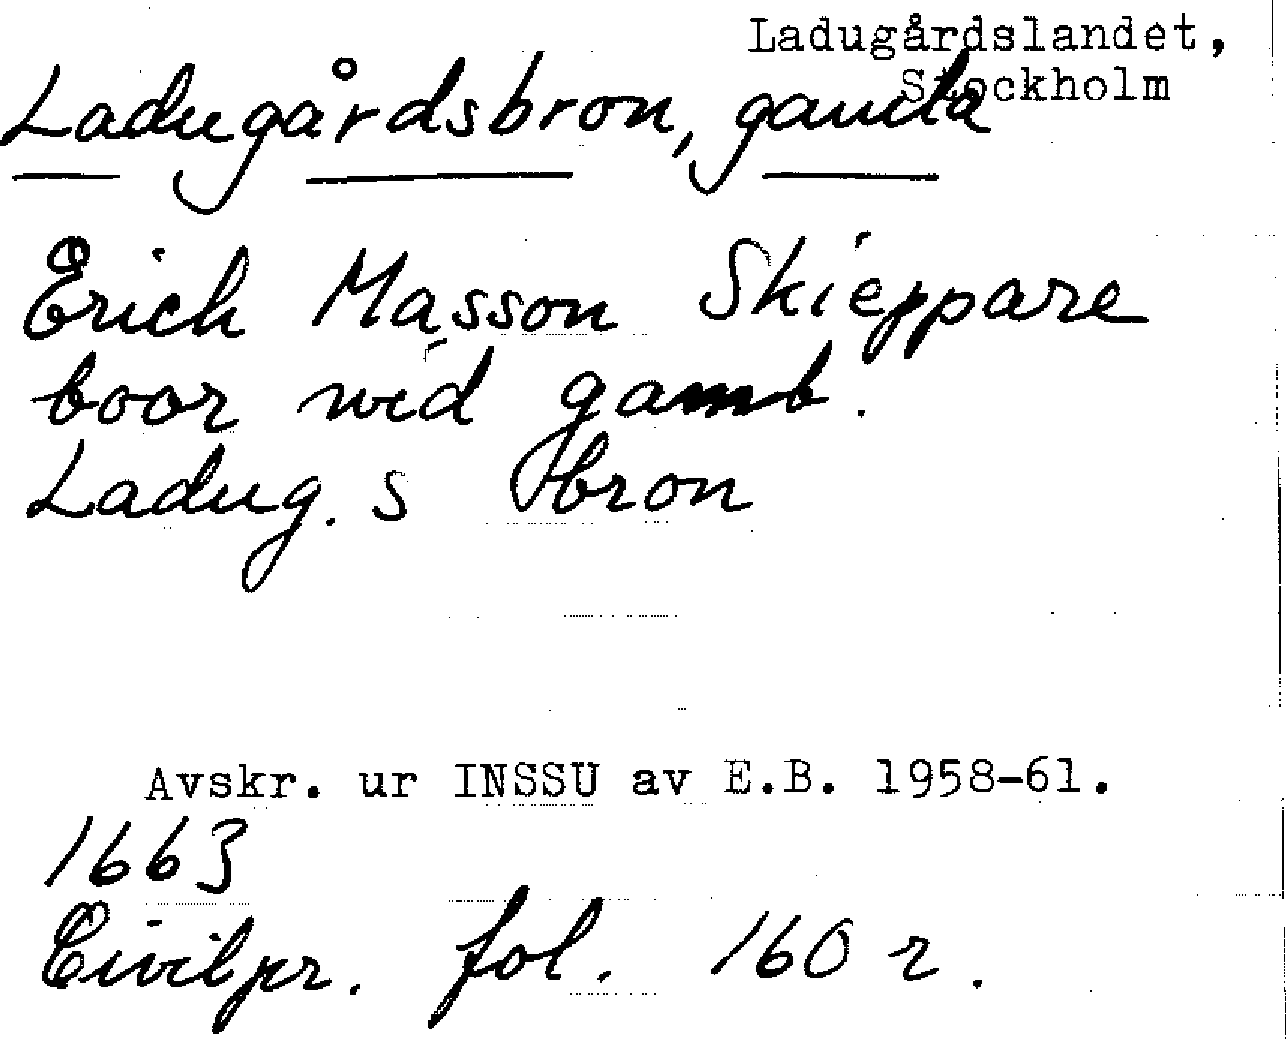 Ladugårdslandet,
Stockholm
Ladugårdsbron, gamla
Erich Masson Skieppare
boor wid gamb.
Ladug. s bron
Avskr. ur INSSU av E.B. 1958-61.
1663
Civilpr. fol. 160 r.